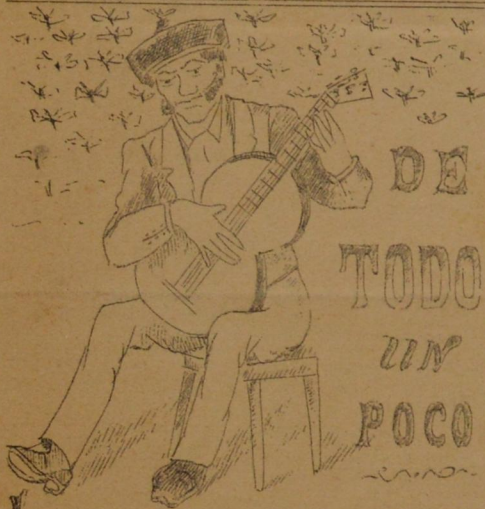 DE
TODO
UN
POCO